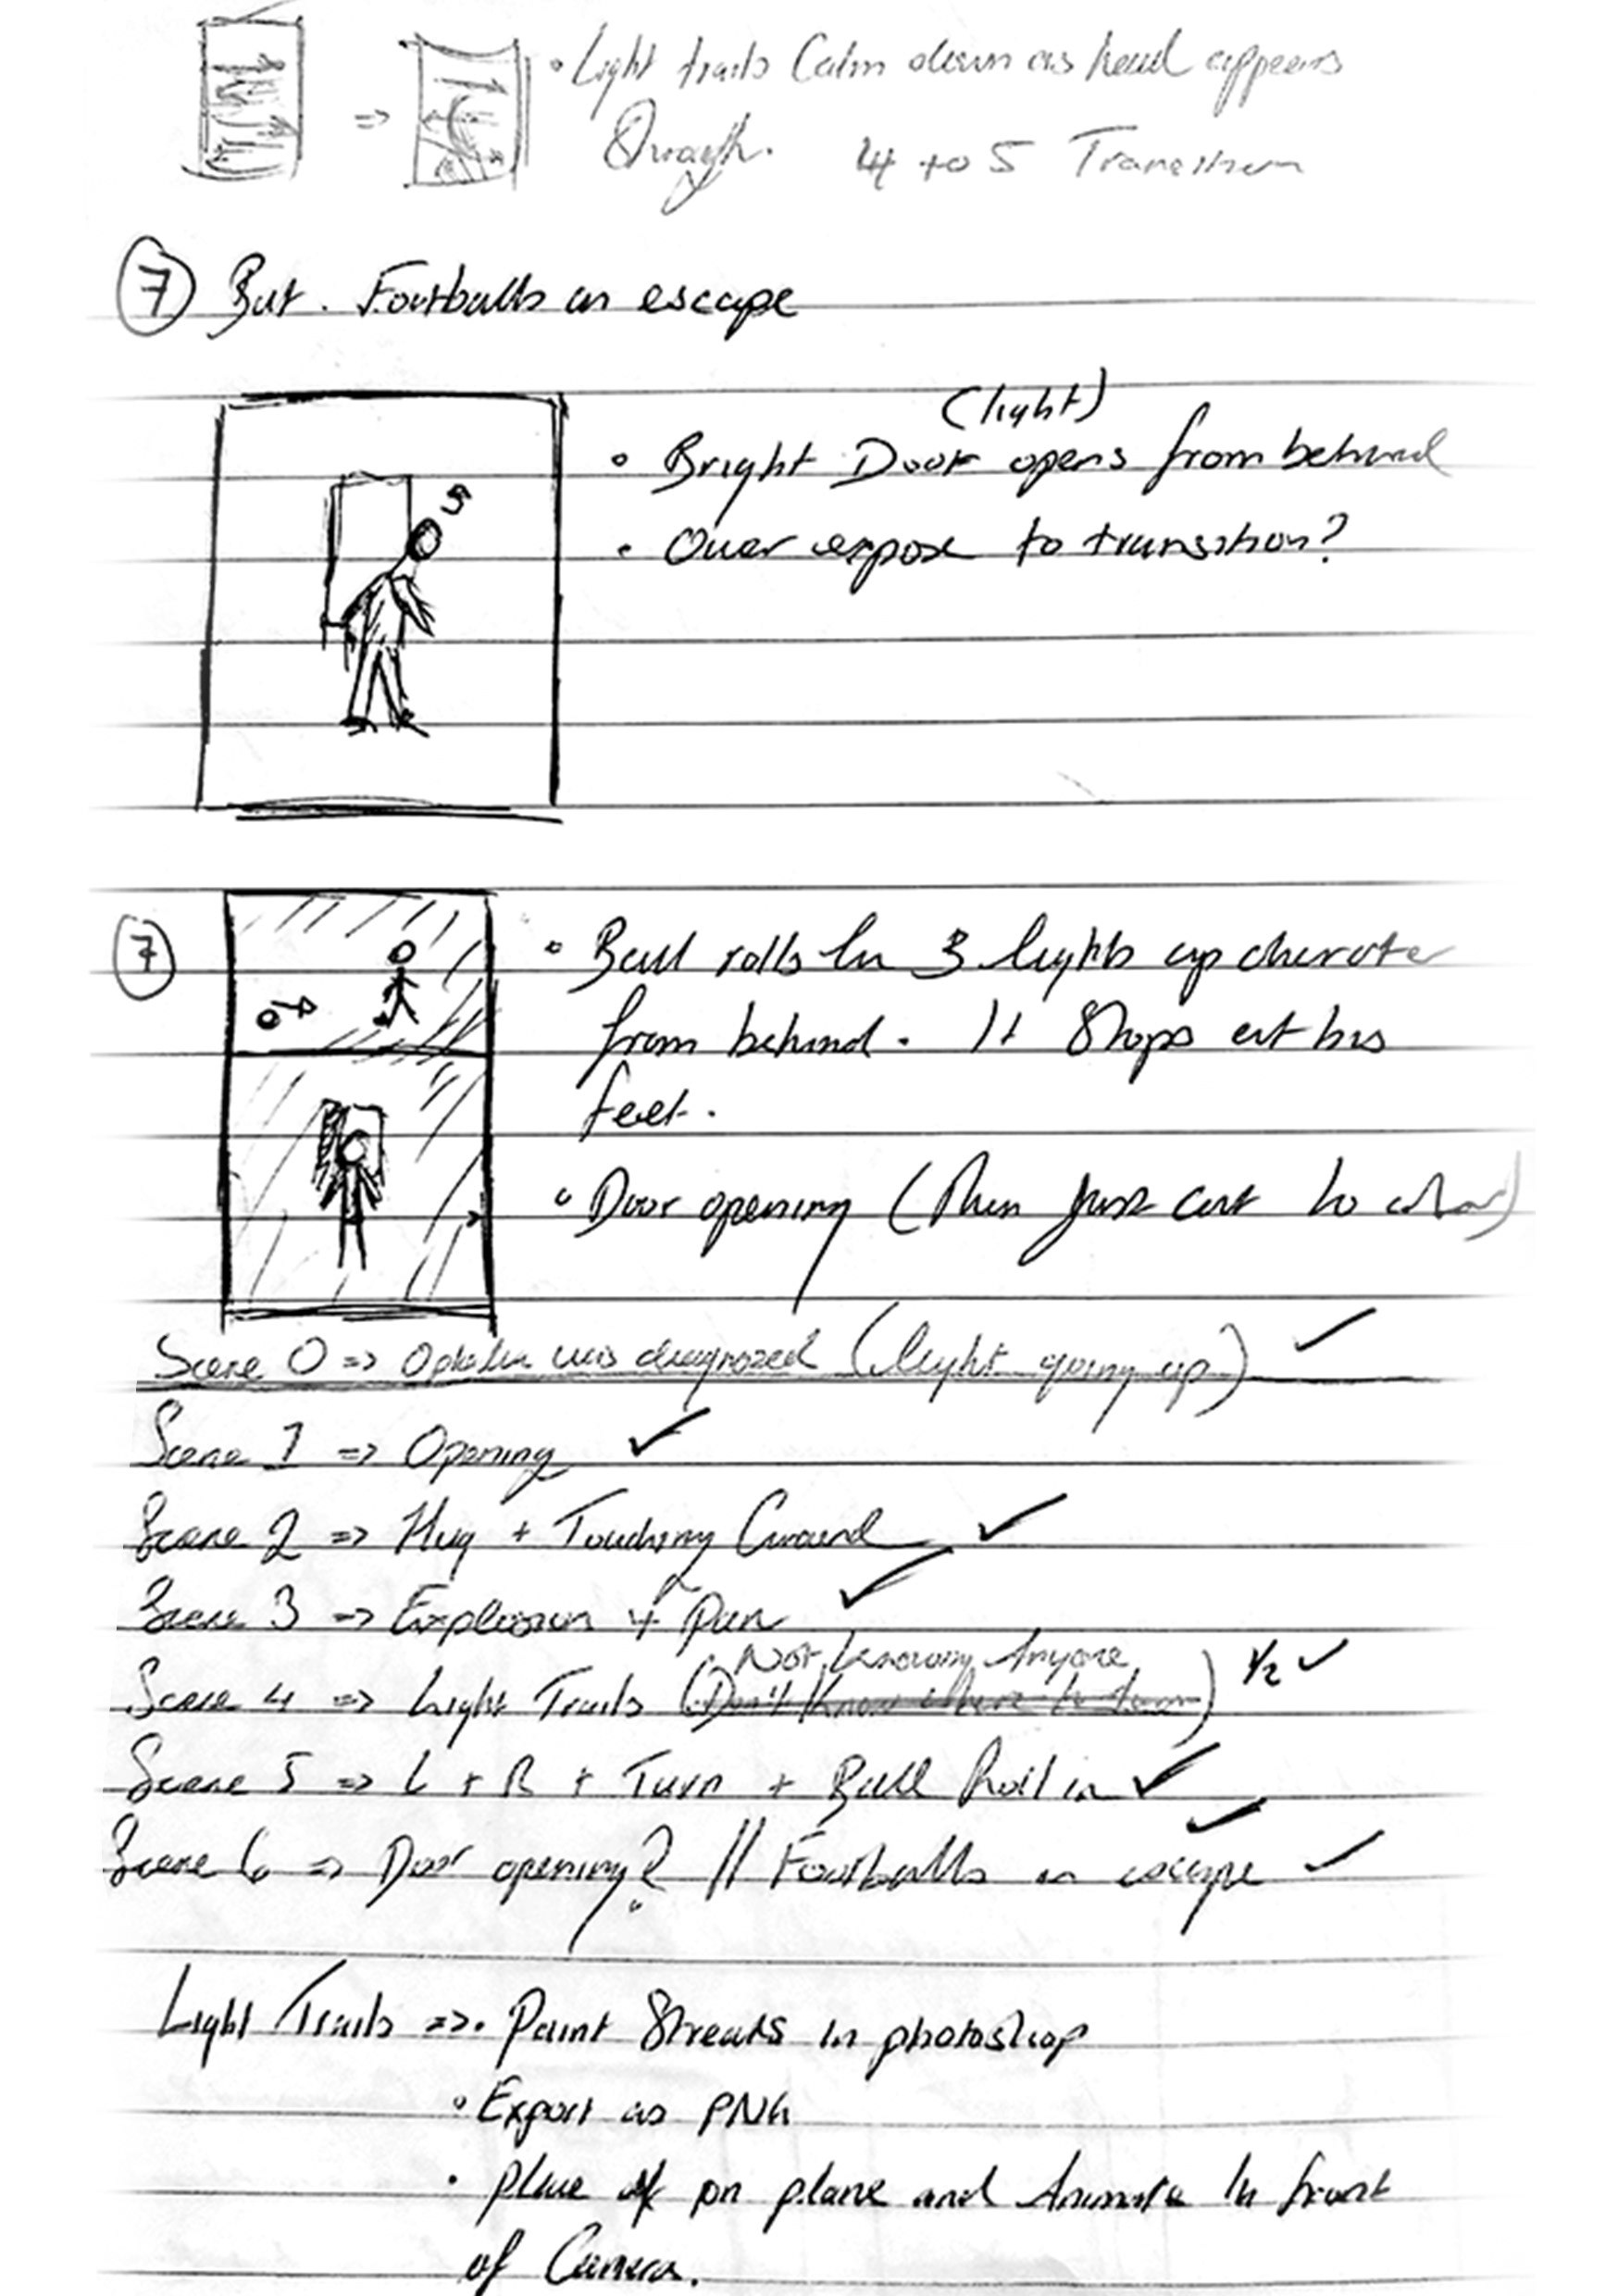 • Light trails Calm down as head appears
through. 4 to 5 Transition
7 But. Footballs an escape
(light)
• Bright Door opens from behind
• Over expose to transition?
7
• Ball rolls in & lights up character
from behind. It Stops at his
feet.
• Door opening (Then just cut to )
Scene 0 => was diagnosed (light going up) ✓
Scene 1 => Opening ✓
Scene 2 => Hug + Touching Ground ✓
Scene 3 => Explosion + Pan ✓
Not Knowing Anyone
Scene 4 => Light Trails (Don't Know where to turn) 1/2 ✓
Scene 5 => L + R + Turn + Ball Roll in ✓
Scene 6 => Door opening? ✓ // Footballs an escape ✓
Light Trails => • Paint Streaks in photoshop
• Export as PNG
• place on plane and Animate In front
of Camera.